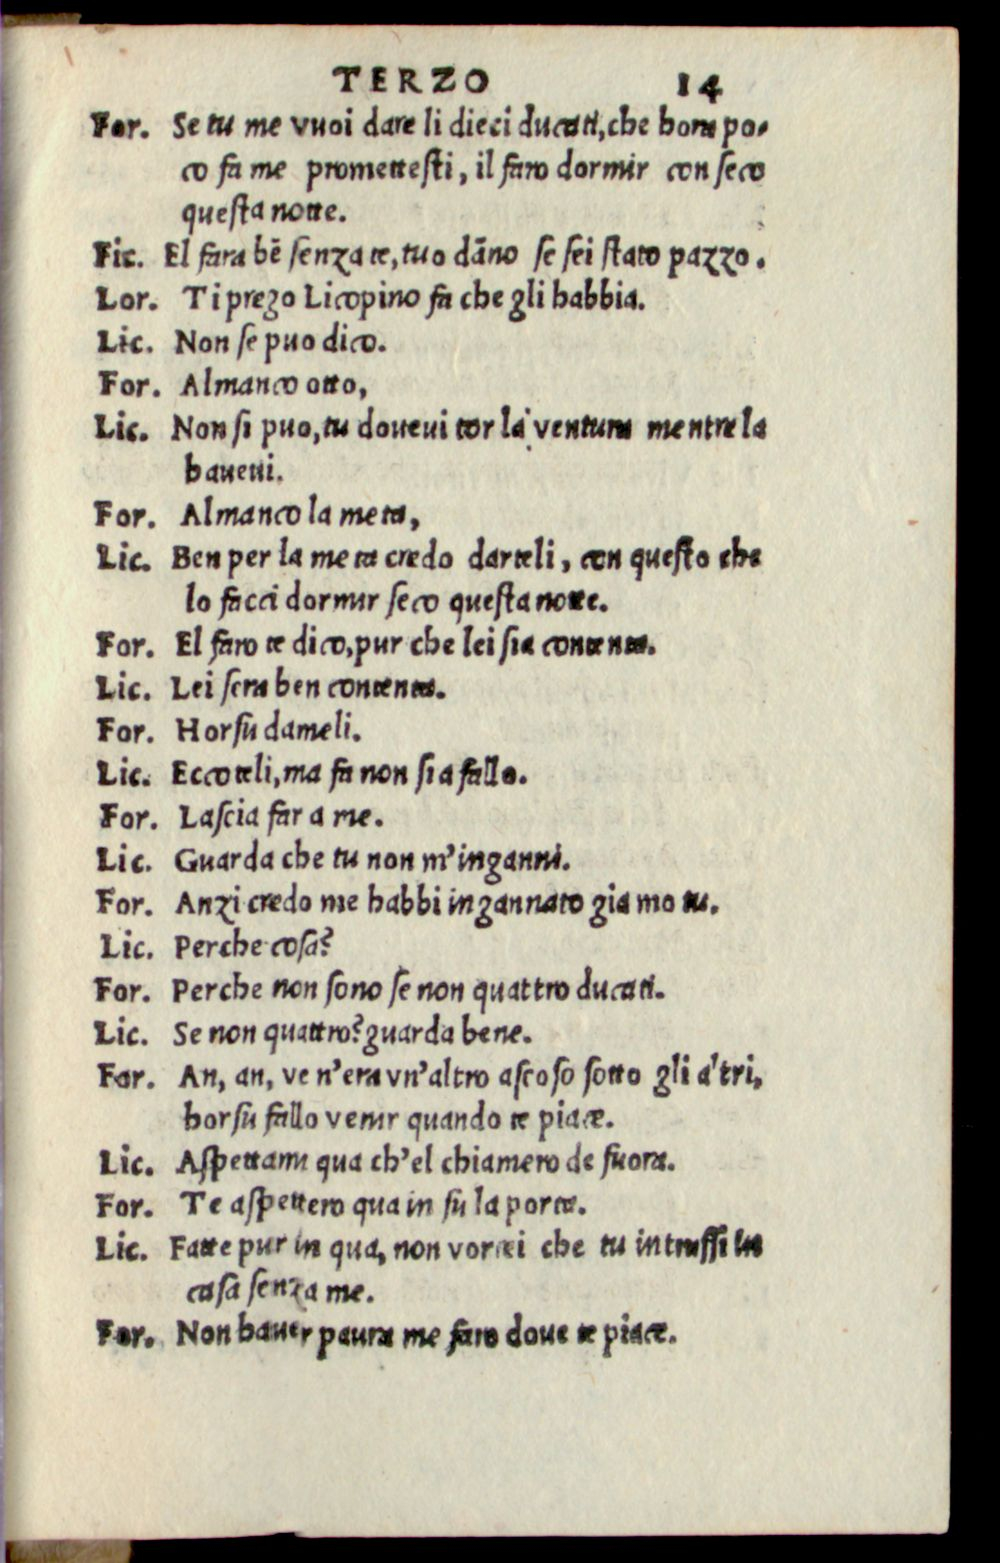 TERZO 14
For. Se tu me vuoi dare li dieci ducati, che hora po-
co fa me promettesti, il faro dormir con seco
questa notte.
Fic. El fara bẽ senza te, tuo dãno se sei stato pazzo.
Lor. Ti prego Licopino fa che gli habbia.
Lic. Non se puo dico.
For. Almanco otto,
Lic. Non si puo, tu doueui tor la ventura mentre la
haueui.
For. Almanco la meta,
Lic. Ben per la meta credo darteli, con questo che
lo facci dormir seco questa notte.
For. El faro te dico, pur che lei sia contenta.
Lic. Lei sera ben contenta.
For. Horsu dameli.
Lic. Eccoteli, ma fa non sia fallo.
For. Lascia far a me.
Lic. Guarda che tu non m'inganni.
For. Anzi credo me habbi ingannato gia mo tu.
Lic. Perche cosa?
For. Perche non sono se non quattro ducati.
Lic. Se non quattro? guarda bene.
For. An, an, ve n'era vn'altro ascoso sotto gli altri,
horsu fallo venir quando te piace.
Lic. Aspettami qua ch'el chiamero de fuora.
For. Te aspettero qua in su la porta.
Lic. Fatte pur in qua, non vorrei che tu intrassi in
casa senza me.
For. Non hauer paura me faro doue te piace.